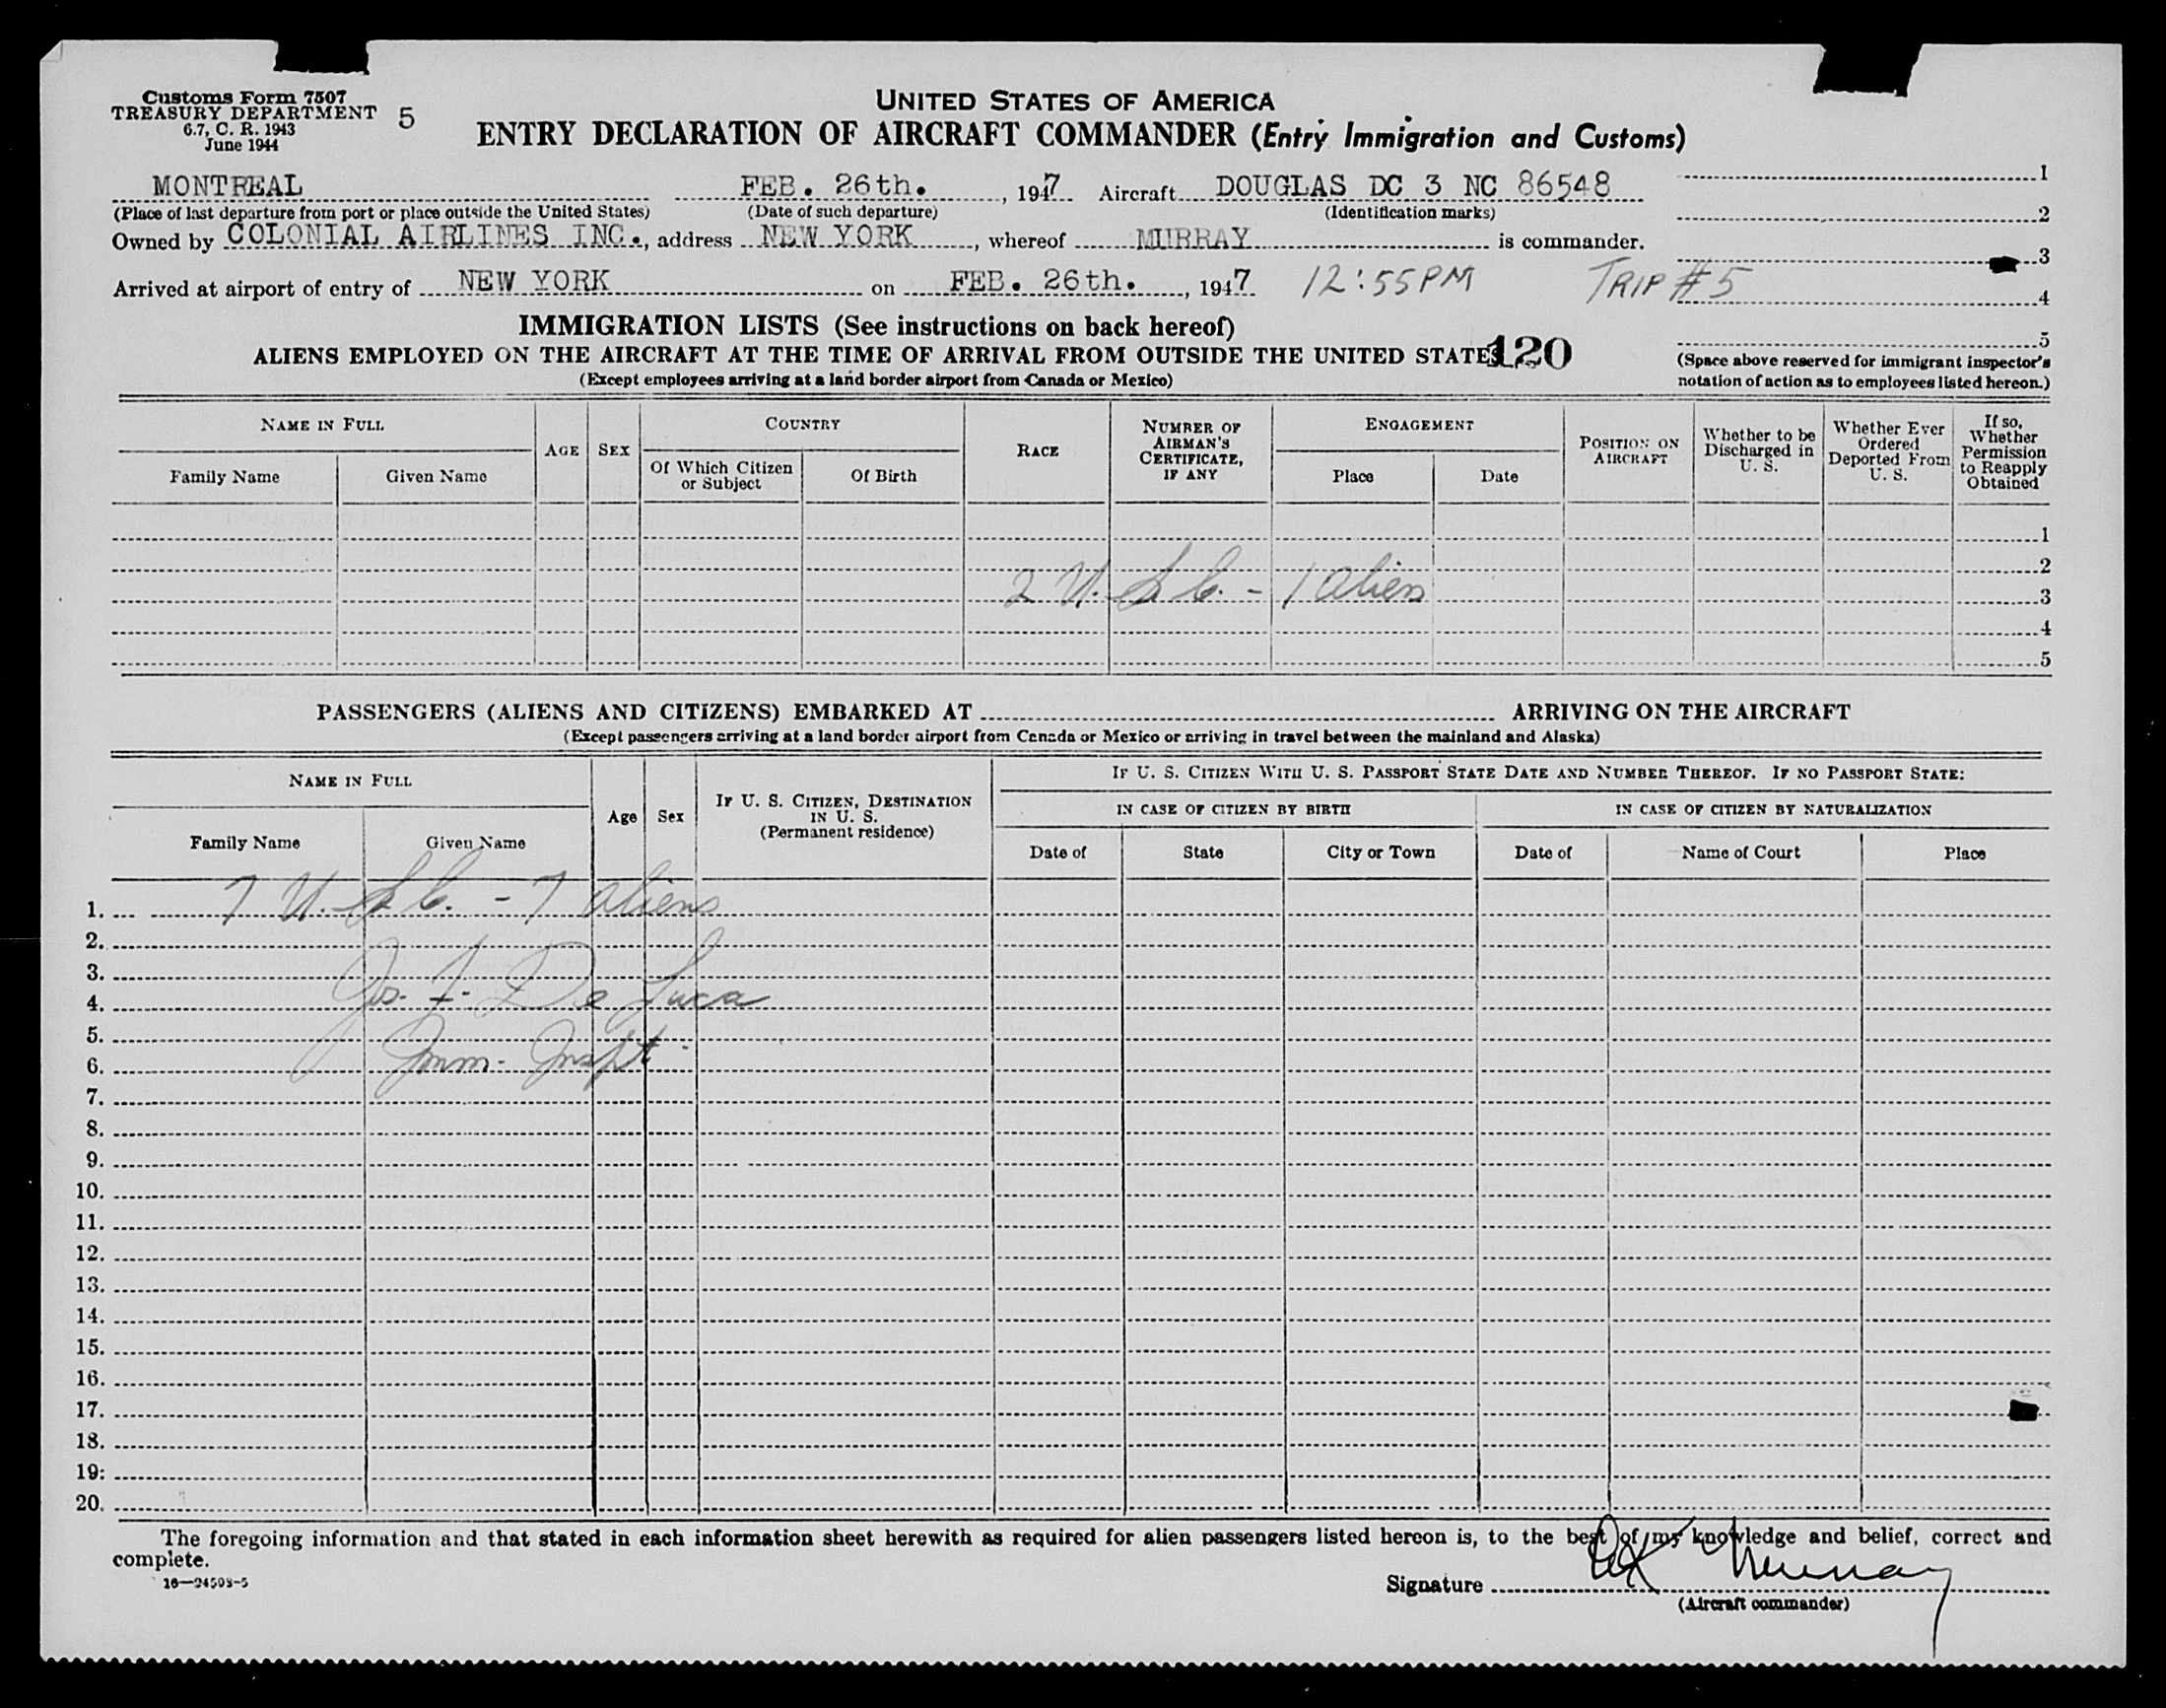 Customs Form 7507
TREASURY DEPARTMENT
6.7, C. R. 1943
June 1944
5
UNITED STATES OF AMERICA
ENTRY DECLARATION OF AIRCRAFT COMMANDER (Entry Immigration and Customs)
MONTREAL FEB. 26th., 1947 Aircraft DOUGLAS DC 3 NC 86548
(Place of last departure from port or place outside the United States) (Date of such departure) (Identification marks)
Owned by COLONIAL AIRLINES INC., address NEW YORK, whereof MURRAY is commander.
Arrived at airport of entry of NEW YORK on FEB. 26th., 1947 12:55PM TRIP #5
1
2
3
4
5
(Space above reserved for immigrant inspector's
notation of action as to employees listed hereon.)
IMMIGRATION LISTS (See instructions on back hereof)
ALIENS EMPLOYED ON THE AIRCRAFT AT THE TIME OF ARRIVAL FROM OUTSIDE THE UNITED STATES 120
(Except employees arriving at a land border airport from Canada or Mexico)
NAME IN FULL
Family Name Given Name
AGE SEX
COUNTRY
Of Which Citizen or Subject
Of Birth
RACE
NUMBER OF AIRMAN'S CERTIFICATE, IF ANY
ENGAGEMENT
Place Date
POSITION ON AIRCRAFT
Whether to be Discharged in U. S.
Whether Ever Ordered Deported From U. S.
If so, Whether Permission to Reapply Obtained
1
2
2 U.S.C. - 1 alien
3
4
5
PASSENGERS (ALIENS AND CITIZENS) EMBARKED AT ARRIVING ON THE AIRCRAFT
(Except passengers arriving at a land border airport from Canada or Mexico or arriving in travel between the mainland and Alaska)
NAME IN FULL
Family Name Given Name
Age Sex
IF U. S. CITIZEN, DESTINATION IN U. S.
(Permanent residence)
IF U. S. CITIZEN WITH U. S. PASSPORT STATE DATE AND NUMBER THEREOF. IF NO PASSPORT STATE:
IN CASE OF CITIZEN BY BIRTH IN CASE OF CITIZEN BY NATURALIZATION
Date of State City or Town Date of Name of Court Place
1. 7 U.S.C. - 7 aliens
2.
3.
4. Jos. F. De Luca
5.
6. Imm. Inspt.
7.
8.
9.
10.
11.
12.
13.
14.
15.
16.
17.
18.
19.
20.
The foregoing information and that stated in each information sheet herewith as required for alien passengers listed hereon is, to the best of my knowledge and belief, correct and
complete.
16—24503-5
Signature Murray
(Aircraft commander)